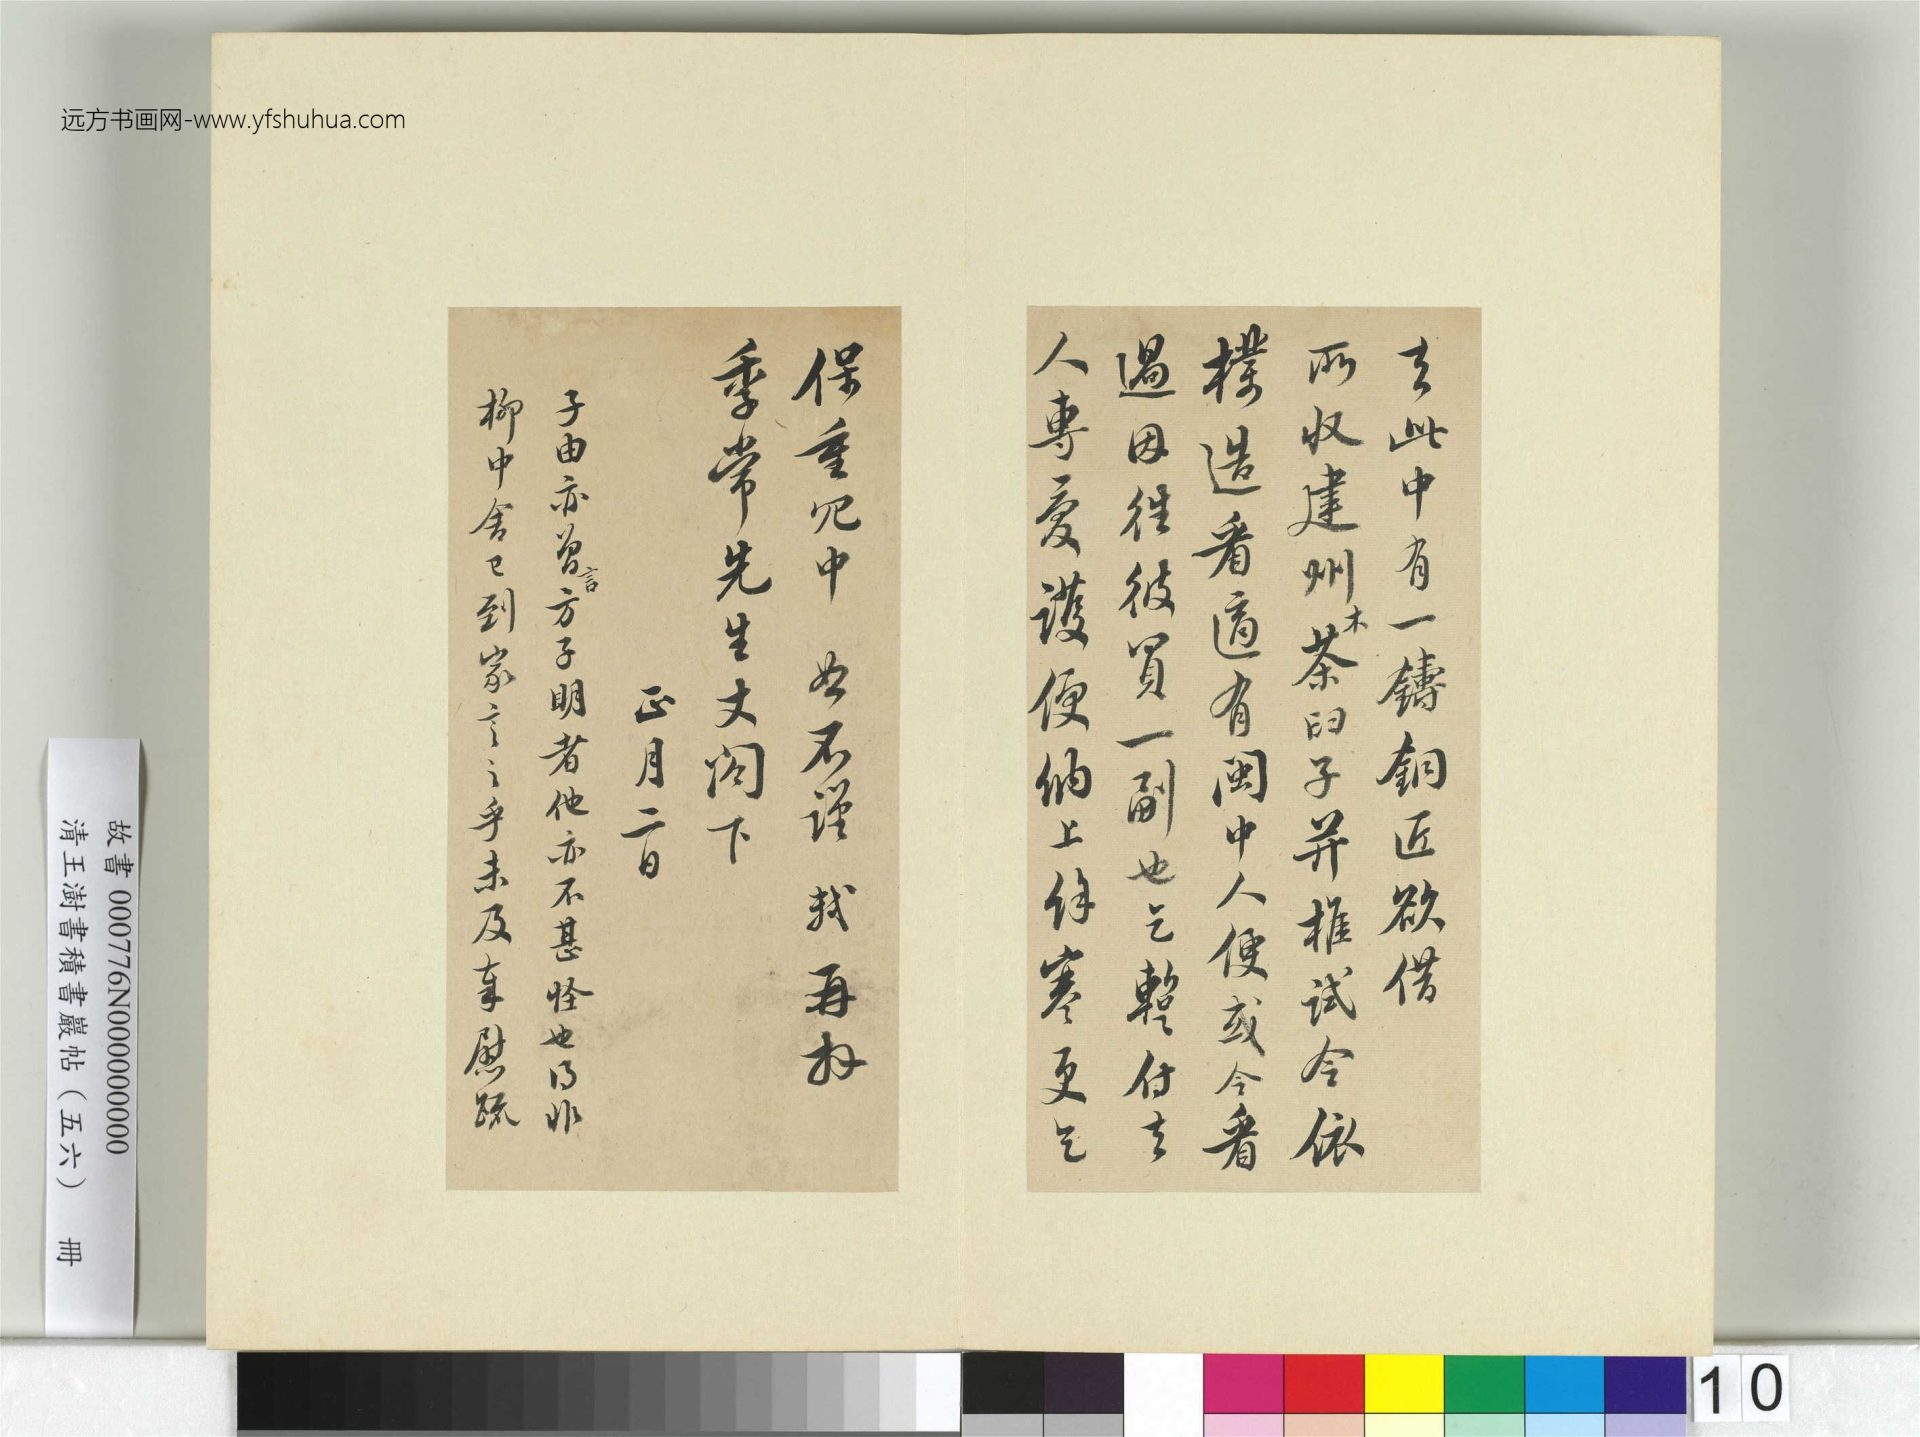 远方书画网-www.yfshuhua.com
去此中有一鑄銅匠欲借
所收建州木茶臼子并椎試令依
樣造看適有閩中人便或令看
過因往彼買一副也乞暫付去
人專愛護便納上餘寒更乞
保重冗中恕不謹軾再拜
季常先生丈閤下
正月二日
子由亦曾言方子明者他亦不甚怪也得非
柳中舍已到家言之乎未及奉慰疏
故書 000776N000000000
清王澍書積書巖帖（五六） 冊
10